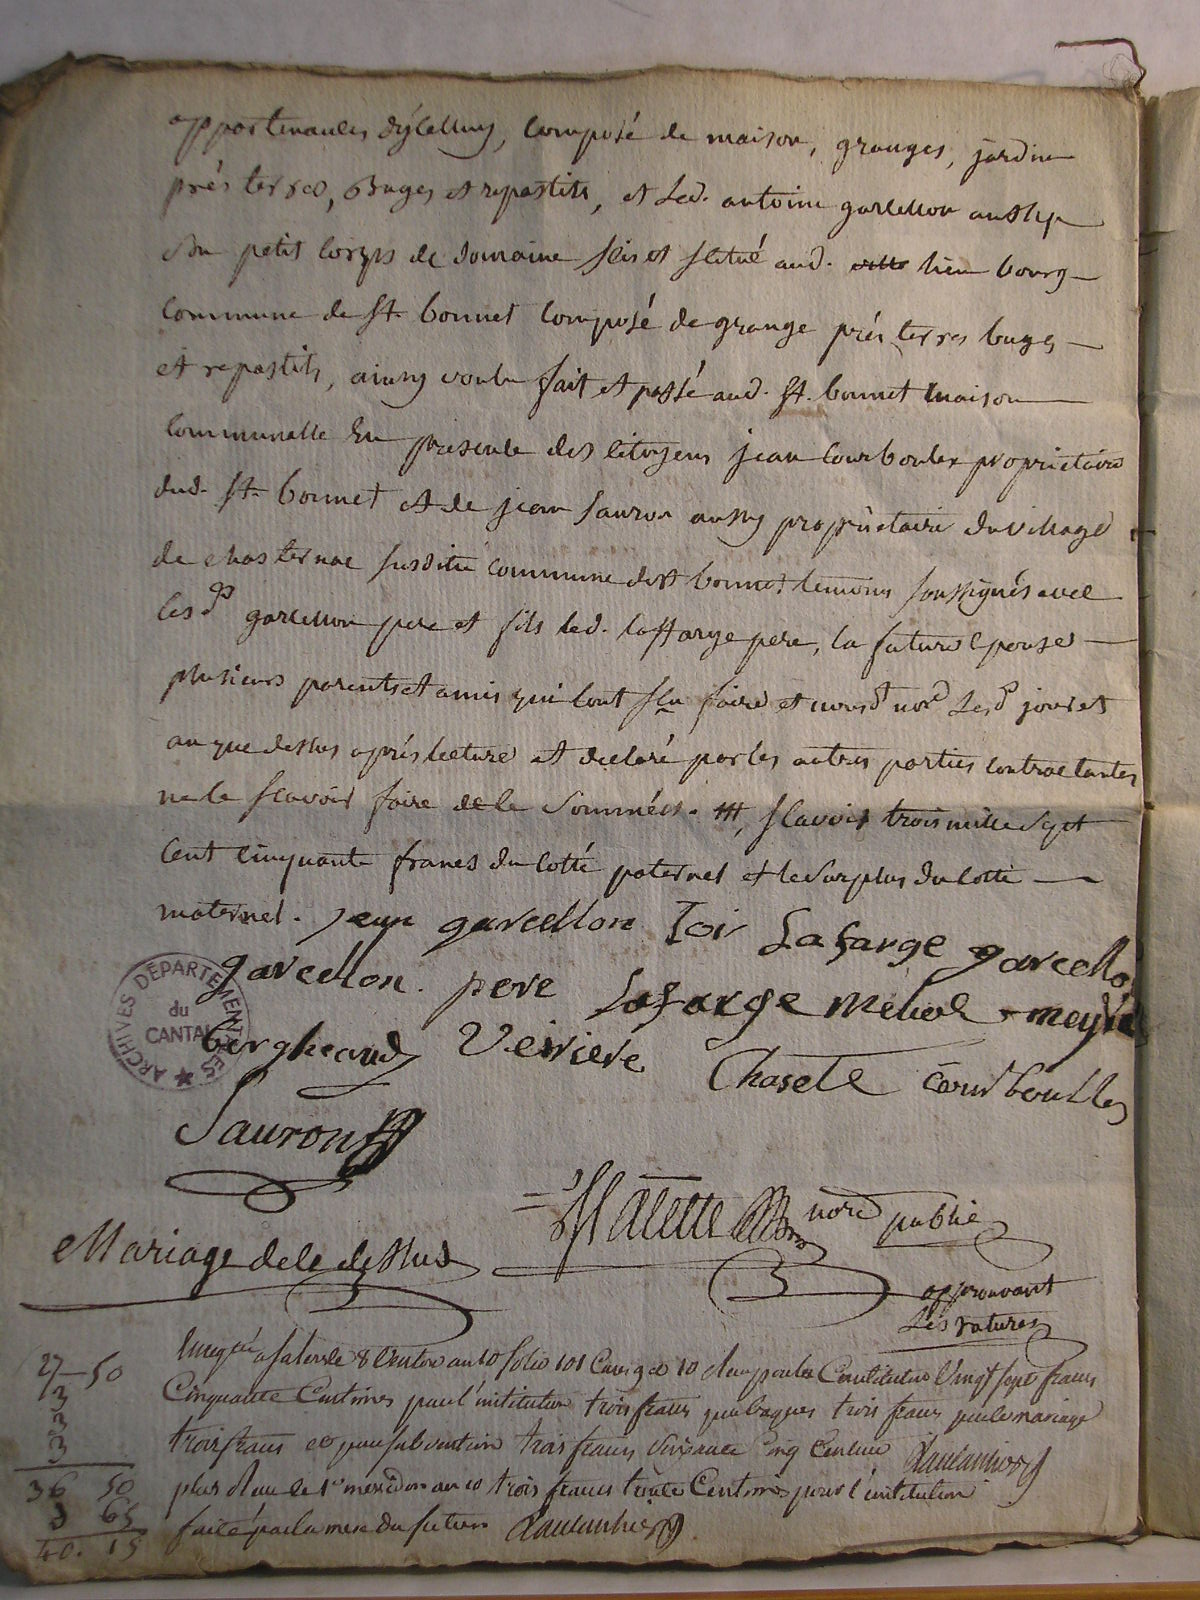 appartenances dycelluy, composé de maison, granges, jardin
prés terres, Buges et repastils, et Led. antoine garcellon aussy
Son petit corps de domaine sis et situé aud. lieu bourg
commune de St. bonnet composé de grange prés terres buges
et repastils, ainsy voulu fait et passé aud. St. bonnet maison
communalle En presence des citoyens jean Courboules proprietaire
dud. St. bonnet et de jean Sauron aussy propriétaire du village
de chasternac susditte commune de St bonnet temoins soussignés avec
les d. garcellon pere et fils led. laffarge pere, la future Epouse
plusieurs parents et amis qui l'ont sçu faire et nousd. nore. Lesd. jour et
an que dessus après lecture et declaré par les autres parties contractantes
ne le sçavoir faire de le Sommées. ttt, sçavoir trois mille sept
cent cinquante francs du cotté paternel et le surplus du cotté
maternel. jean garcellon Toir Lafarge garcello
garcellon. pere Lafarge meliel meyre
bergheaud Veissere Chasele courboulles
Sauron
Malette nore public
Mariage de le dessus
approuvant
Les ratures
27-50
3
3
3
36 50
3 65
40. 15
Enreg.té a Salers le 8 Ventose an 10 folio 101 Case 9 et 10 Reçu pour la Constitution Vingt Sept francs
Cinquante Centimes pour l'institution trois francs pour bagues trois francs pour le mariage
trois francs et pour subvention trois francs Soixante Cinq Centimes
plus Reçu le 1er messidor an 10 trois francs trente Centimes pour l'institution
faite par la mere du futur
ARCHIVES DÉPARTEMENTALES
du
CANTAL